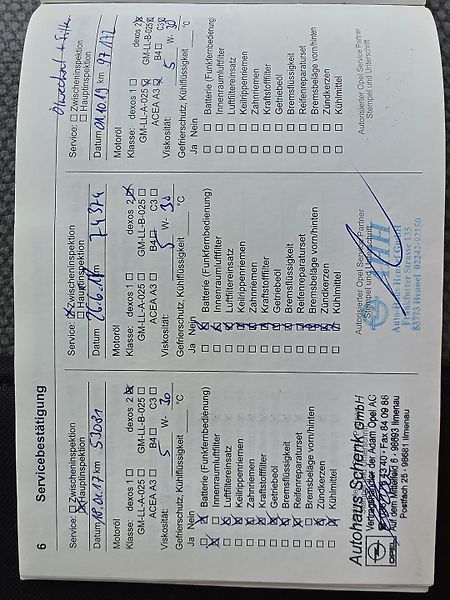 6 Servicebestätigung
Service: ☐ Zwischeninspektion
☒ Hauptinspektion
Datum 18.01.17 km
Motoröl
Klasse: dexos 1 ☐ dexos 2 ☒
GM-LL-A-025 ☐ GM-LL-B-025 ☐
ACEA A3 ☐ B4 ☐ C3 ☐
Viskosität: 5 W- 30
Gefrierschutz, Kühlflüssigkeit °C
Ja Nein
Batterie (Funkfernbedienung)
Innenraumluftfilter
Luftfiltereinsatz
Keilrippenriemen
Zahnriemen
Kraftstofffilter
Getriebeöl
Bremsflüssigkeit
Reifenreparaturset
Bremsbeläge vorn/hinten
Zündkerzen
Kühlmittel
Autohaus Schenk GmbH
Vertragspartner der Adam Opel AG
OPEL
Auf dem Mittelfeld 5 · 98693 Ilmenau
Fax 84 09 86
Postfach 25 · 98681 Ilmenau
Service: ☒ Zwischeninspektion
☐ Hauptinspektion
Datum 26.6.18 km 74374
Motoröl
Klasse: dexos 1 ☐ dexos 2 ☒
GM-LL-A-025 ☐ GM-LL-B-025 ☐
ACEA A3 ☐ B4 ☐ C3 ☐
Viskosität: 5 W- 30
Gefrierschutz, Kühlflüssigkeit °C
Ja Nein
Batterie (Funkfernbedienung)
Innenraumluftfilter
Luftfiltereinsatz
Keilrippenriemen
Zahnriemen
Kraftstofffilter
Getriebeöl
Bremsflüssigkeit
Reifenreparaturset
Bremsbeläge vorn/hinten
Zündkerzen
Kühlmittel
Autorisierter Opel Service Partner
Stempel und Unterschrift
AHH
53773 Hennef
Ölwechsel + Filter
Service: ☐ Zwischeninspektion
☐ Hauptinspektion
Datum 01.10.19 km 92 132
Motoröl
Klasse: dexos 1 ☐ dexos 2 ☒
GM-LL-A-025 ☒ GM-LL-B-025 ☒
ACEA A3 ☒ B4 ☐ C3 ☒
Viskosität: 5 W- 30
Gefrierschutz, Kühlflüssigkeit °C
Ja Nein
Batterie (Funkfernbedienung)
Innenraumluftfilter
Luftfiltereinsatz
Keilrippenriemen
Zahnriemen
Kraftstofffilter
Getriebeöl
Bremsflüssigkeit
Reifenreparaturset
Bremsbeläge vorn/hinten
Zündkerzen
Kühlmittel
Autorisierter Opel Service Partner
Stempel und Unterschrift